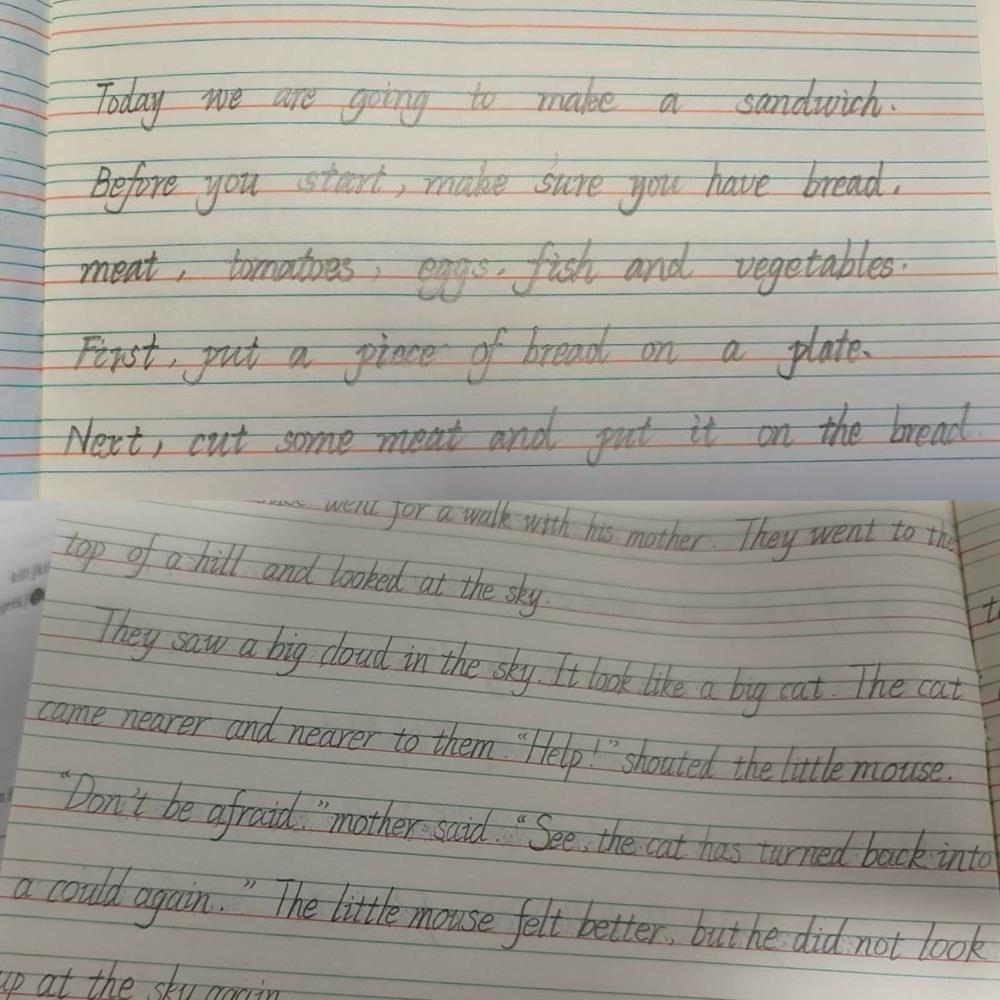 Today we are going to make a sandwich.
Before you start, make sure you have bread.
meat, tomatoes, eggs. fish and vegetables.
First, put a piece of bread on a plate.
Next, cut some meat and put it on the bread.
went for a walk with his mother. They went to the
top of a hill and looked at the sky.
They saw a big cloud in the sky. It look like a big cat. The cat
came nearer and nearer to them. "Help!" shouted the little mouse.
"Don't be afraid." mother said. "See, the cat has turned back into
a could again." The little mouse felt better, but he did not look
up at the sky again